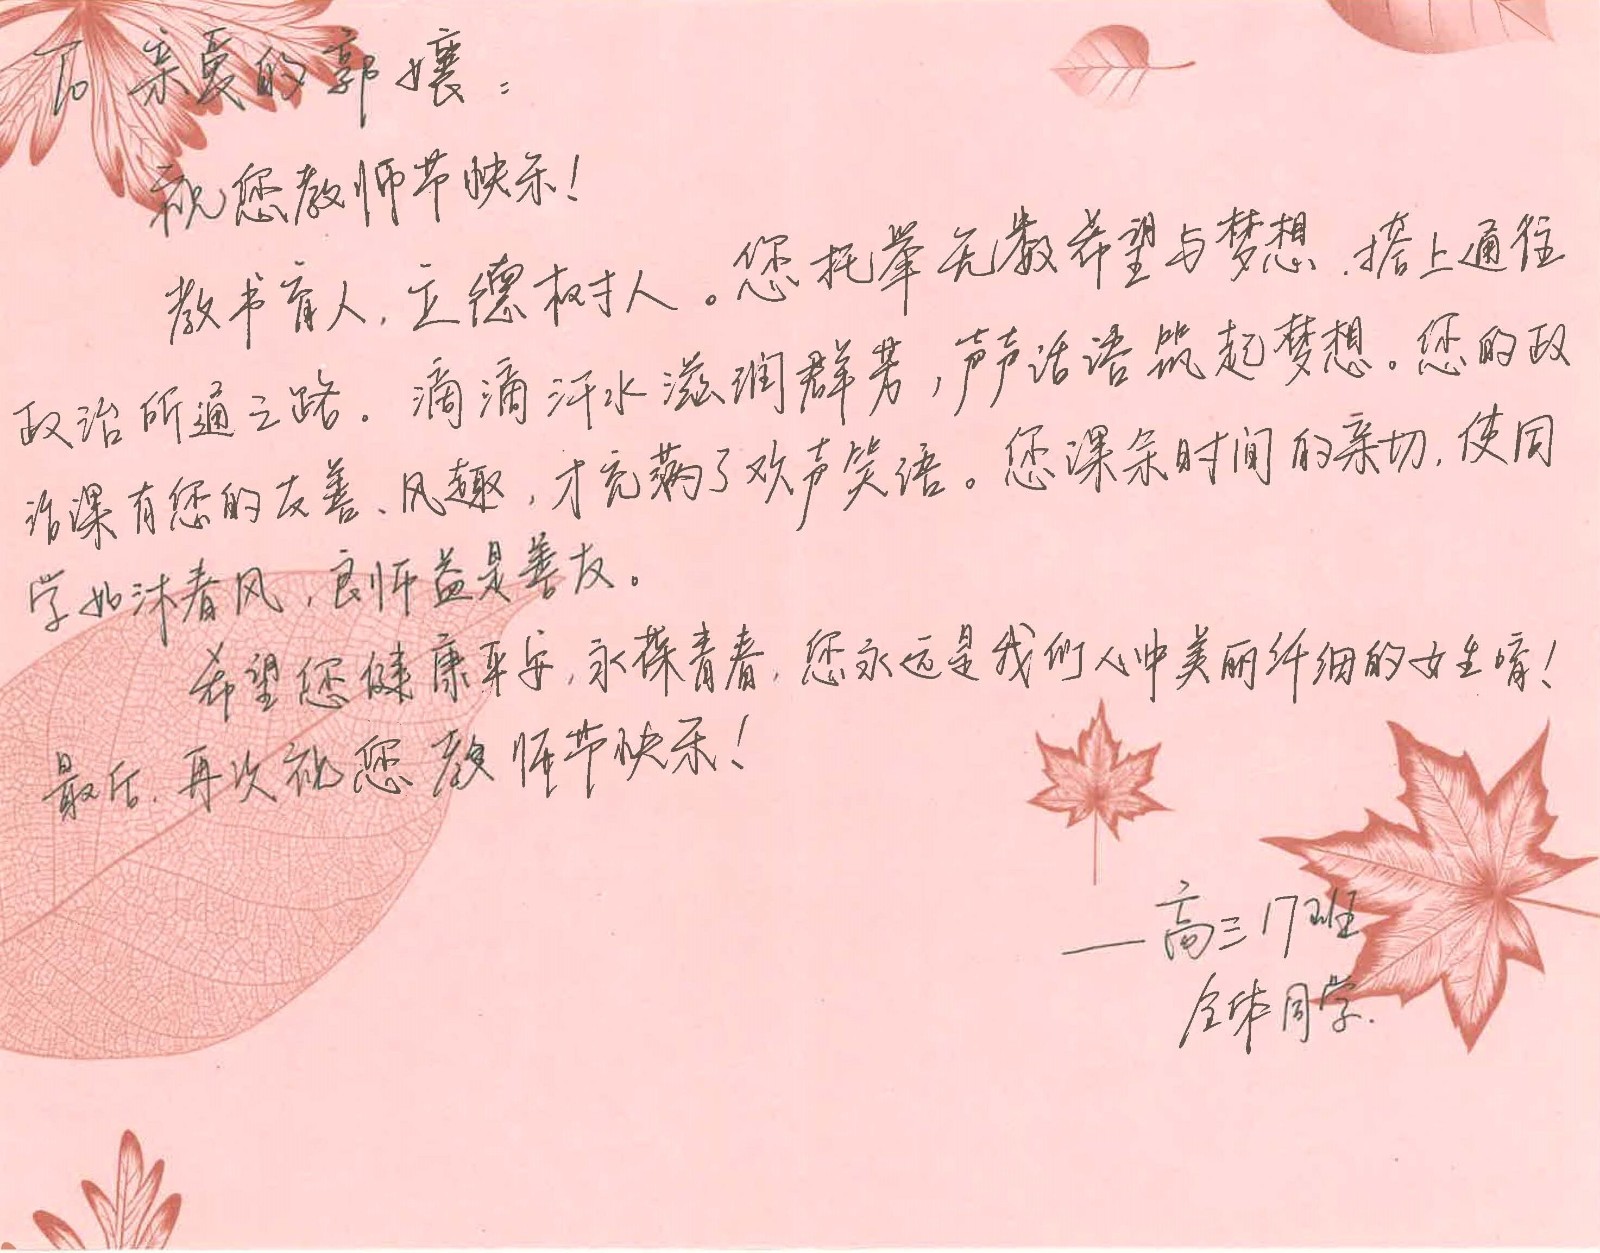 To 亲爱的郭孃：
祝您教师节快乐！
教书育人，立德树人。您托举无数希望与梦想，搭上通往
政治所通之路。滴滴汗水滋润群芳，声声话语筑起梦想。您的政
治课有您的友善、风趣，才充满了欢声笑语。您课余时间的亲切，使同
学如沐春风，良师益是善友。
希望您健康平安，永葆青春，您永远是我们心中美丽纤细的女生嘻！
最后，再次祝您教师节快乐！
——高三17班
全体同学.